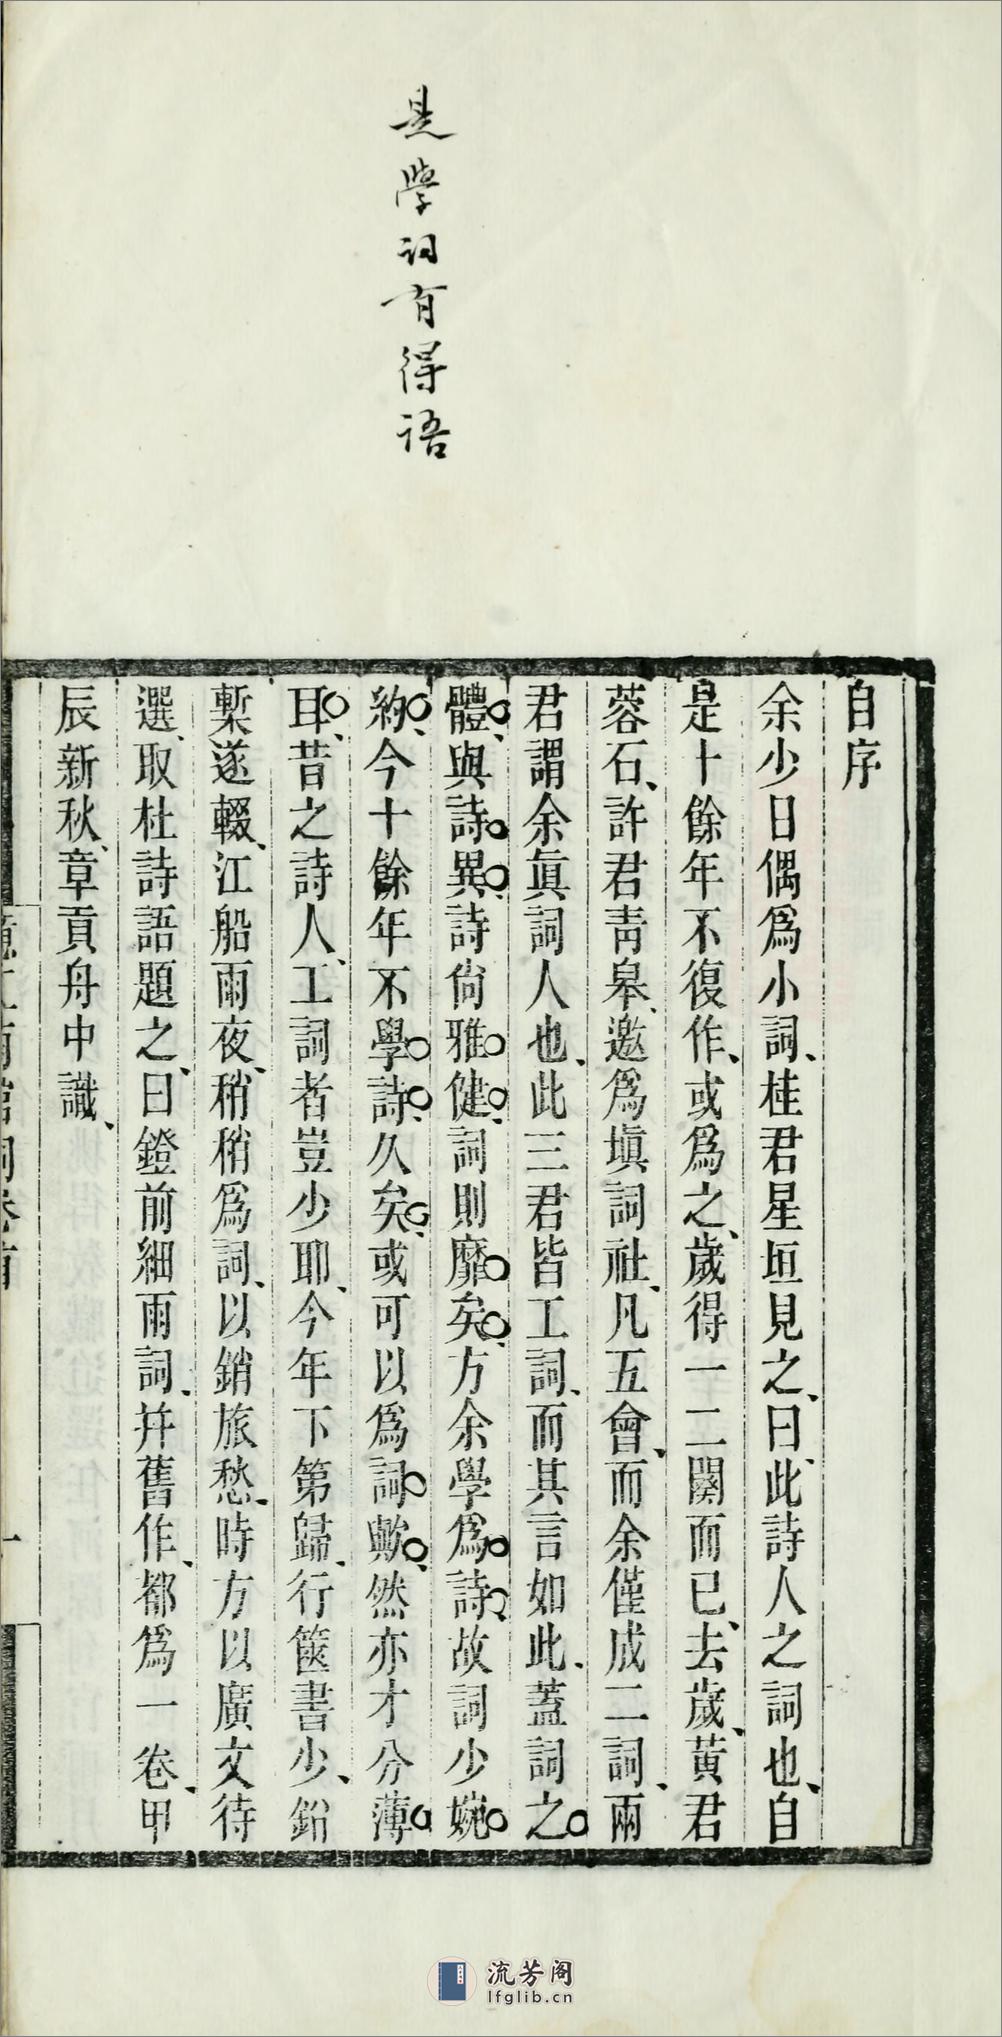 是學詞有得語
自序
余少日偶爲小詞、桂君星垣見之、曰此詩人之詞也、自
是十餘年不復作、或爲之、歲得一二闋而已、去歲、黃君
蓉石、許君靑皋、邀爲塡詞社、凡五會、而余僅成二詞、兩
君謂余眞詞人也、此三君皆工詞、而其言如此、蓋詞之
體、與詩異、詩尙雅健、詞則靡矣、方余學爲詩、故詞少婉
約、今十餘年不學詩、久矣、或可以爲詞歟、然亦才分薄
耳、昔之詩人、工詞者豈少耶、今年下第歸、行篋書少、鉛
槧遂輟、江船雨夜、稍稍爲詞、以銷旅愁、時方以廣文待
選、取杜詩語題之、曰鐙前細雨詞、幷舊作、都爲一卷、甲
辰新秋、章貢舟中識、
憶江南館詞卷首
一
流芳阁
lfglib.cn